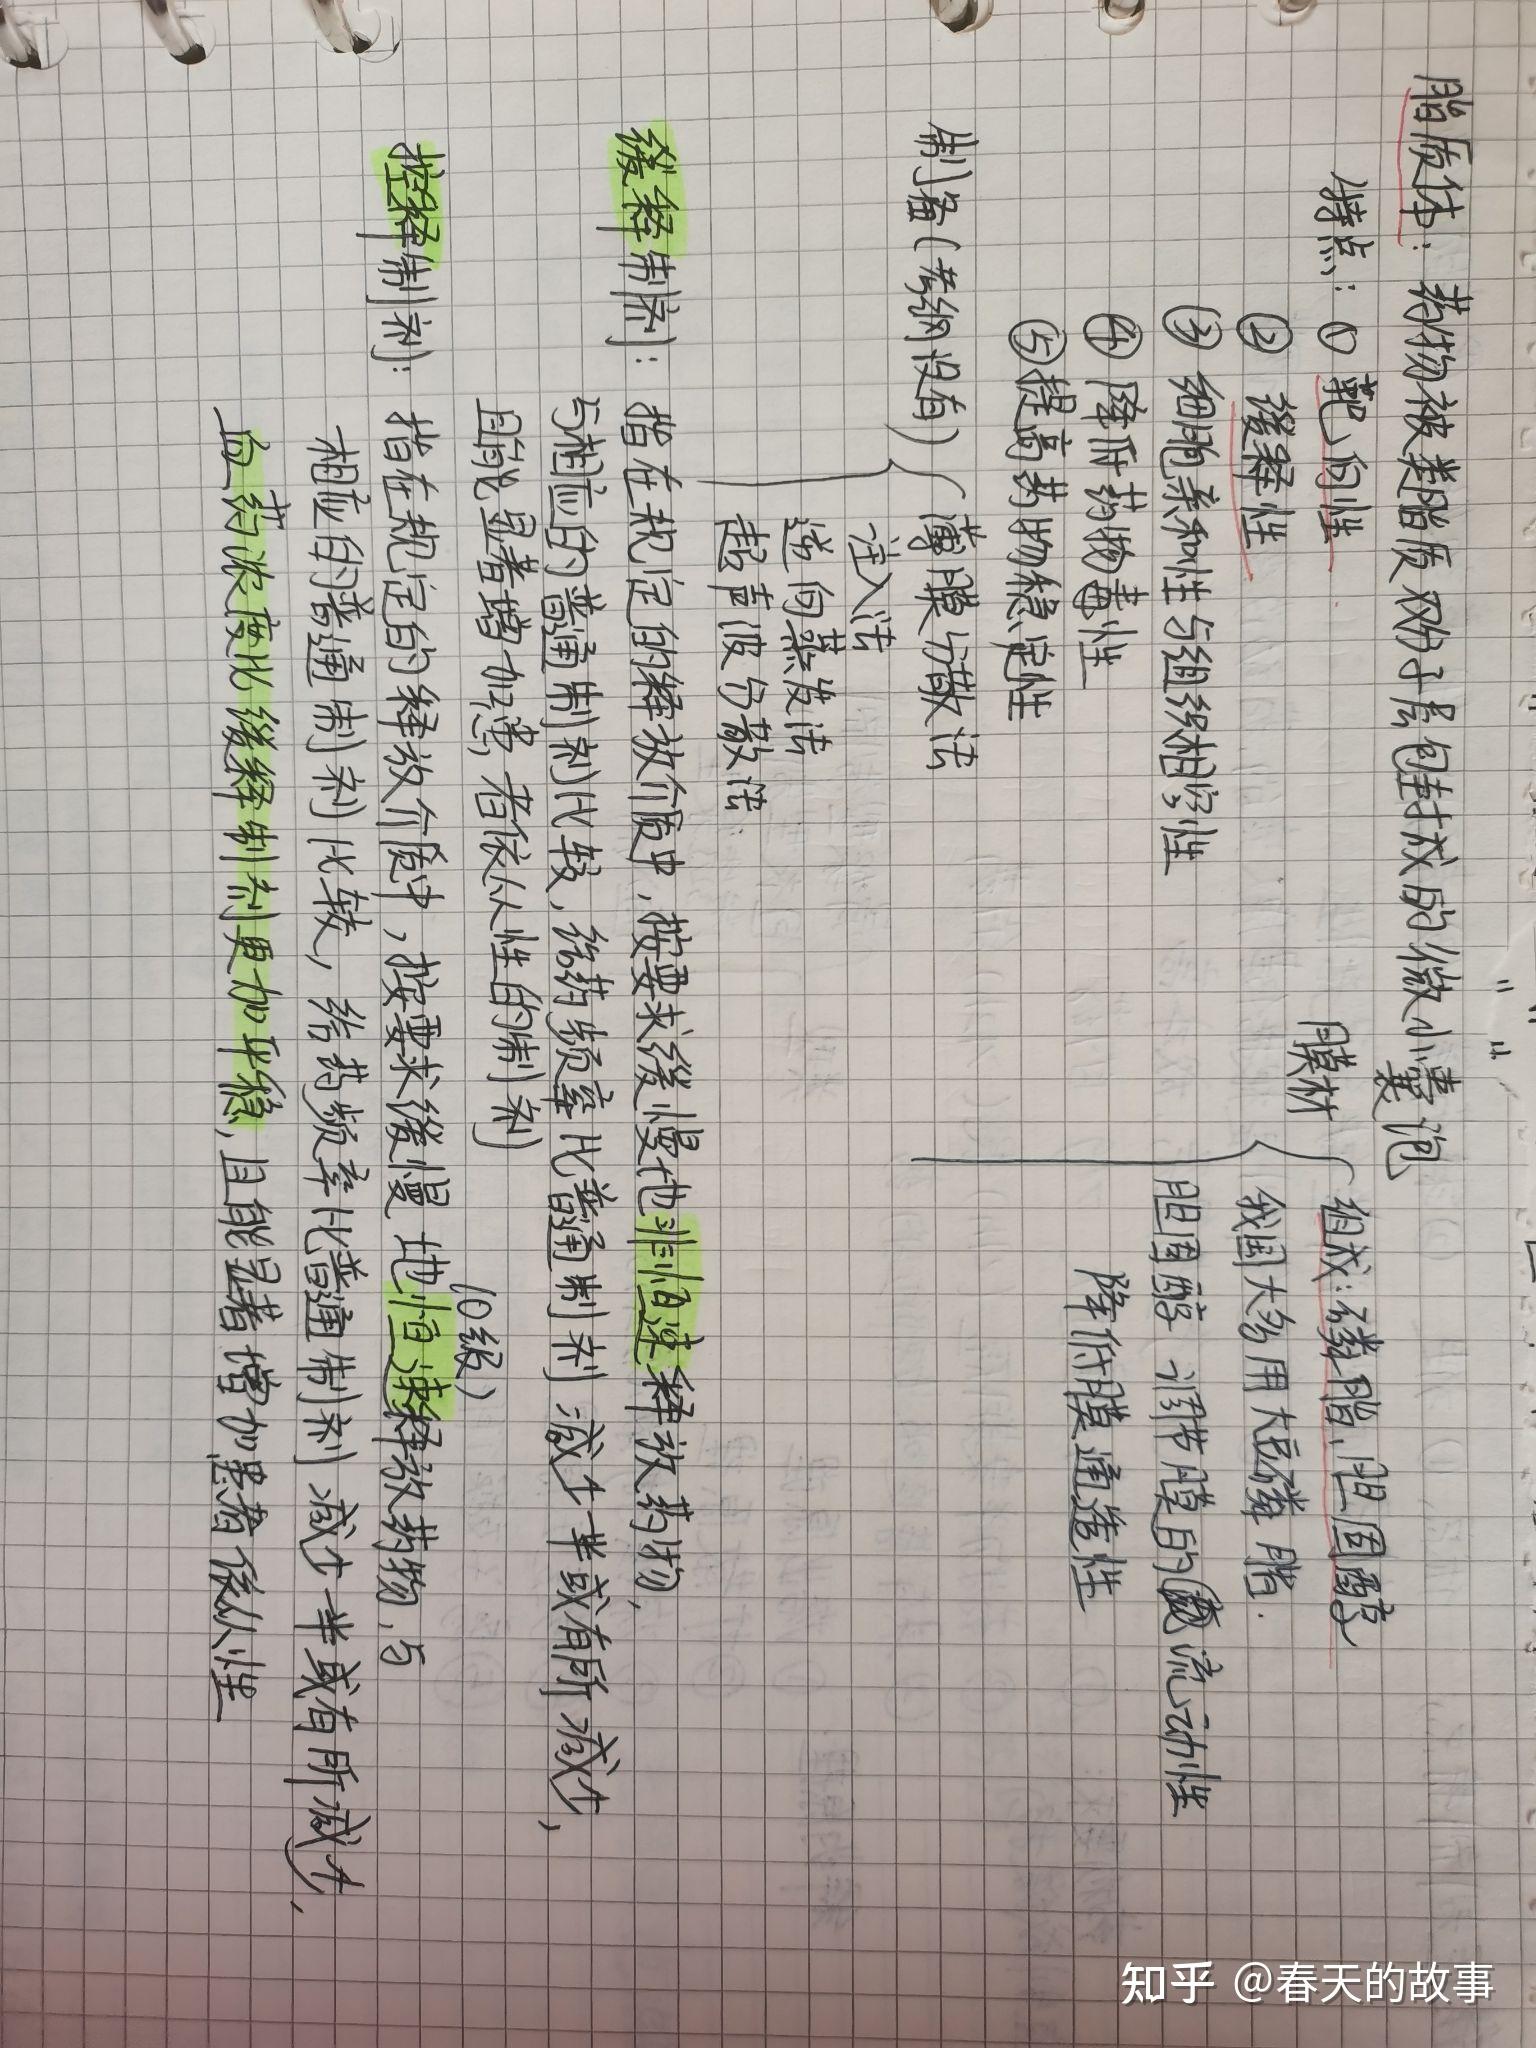 脂质体：药物被类脂质双分子层包封成的微小囊泡
特点：① 靶向性
② 缓释性
③ 细胞亲和性与组织相容性
④ 降低药物毒性
⑤ 提高药物稳定性
膜材
组成：磷脂、胆固醇
我国大多用大豆磷脂.
胆固醇 调节膜的流动性
降低膜通透性
制备（考纲没有）
薄膜分散法
注入法
逆向蒸发法
超声波分散法
缓释制剂：指在规定的释放介质中，按要求缓慢地非恒速释放药物，
与相应的普通制剂比较，给药频率比普通制剂减少一半或有所减少，
且能显著增加患者依从性的制剂
(0级)
控释制剂：指在规定的释放介质中，按要求缓慢地恒速释放药物，与
相应的普通制剂比较，给药频率比普通制剂减少一半或有所减少，
血药浓度比缓释制剂更加平稳，且能显著增加患者依从性
知乎 @春天的故事